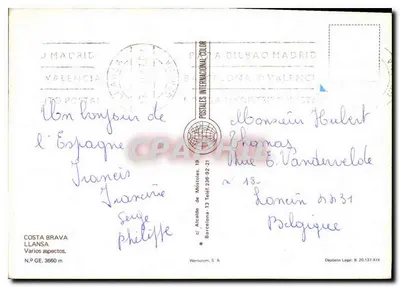 MADRID
BILBAO MADRID
VALENCIA
Un bonjour de
l'Espagne
Francis
Francine
Serge
philippe
COSTA BRAVA
LLANSA
Varios aspectos.
N.º GE. 3660 m
POSTALES INTERNACIONAL COLOR
c/ Alcalde de Móstoles, 19
Barcelona 13 Telef. 230-02-21
CPAPHIL
Monsieur Hubert
Thomas
Rue E. Vandervelde
n 13
Loncin
Belgique
S. A.
Depósito Legal B. 29.137-XIX